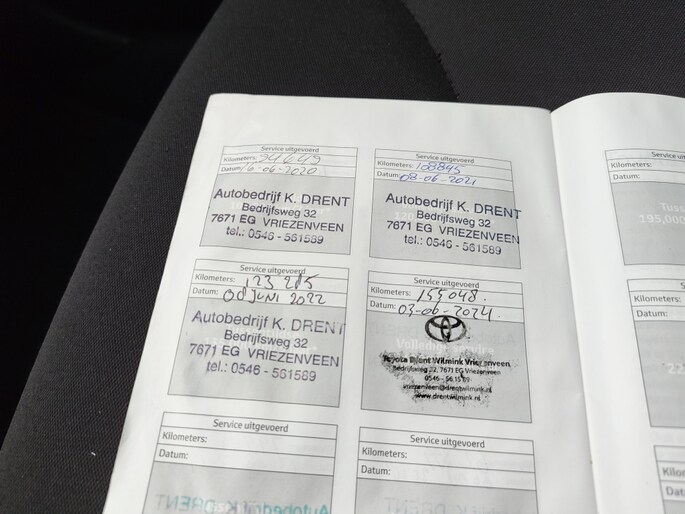 Service uitgevoerd
Kilometers: 94649
Datum: 16-06-2020
Autobedrijf K. DRENT
Bedrijfsweg 32
7671 EG VRIEZENVEEN
tel.: 0546 - 561589
Service uitgevoerd
Kilometers: 108845
Datum: 08-06-2021
Autobedrijf K. DRENT
Bedrijfsweg 32
7671 EG VRIEZENVEEN
tel.: 0546 - 561589
Service uitgevoerd
Kilometers: 123 285
Datum: JUNI 2022
Autobedrijf K. DRENT
Bedrijfsweg 32
7671 EG VRIEZENVEEN
tel.: 0546 - 561589
Service uitgevoerd
Kilometers: 155048.
Datum: 03-06-2024.
Toyota Drent Wilmink Vriezenveen
Bedrijfsweg 32, 7671 EG Vriezenveen
0546 - 56 15 89
vriezenveen@drentwilmink.nl
www.drentwilmink.nl
Service uitgevoerd
Kilometers:
Datum:
Service uitgevoerd
Kilometers:
Datum:
Service
Kilometers:
Datum:
Tuss
195,000
Se
Kilometers
Datum:
Kilo
Dat